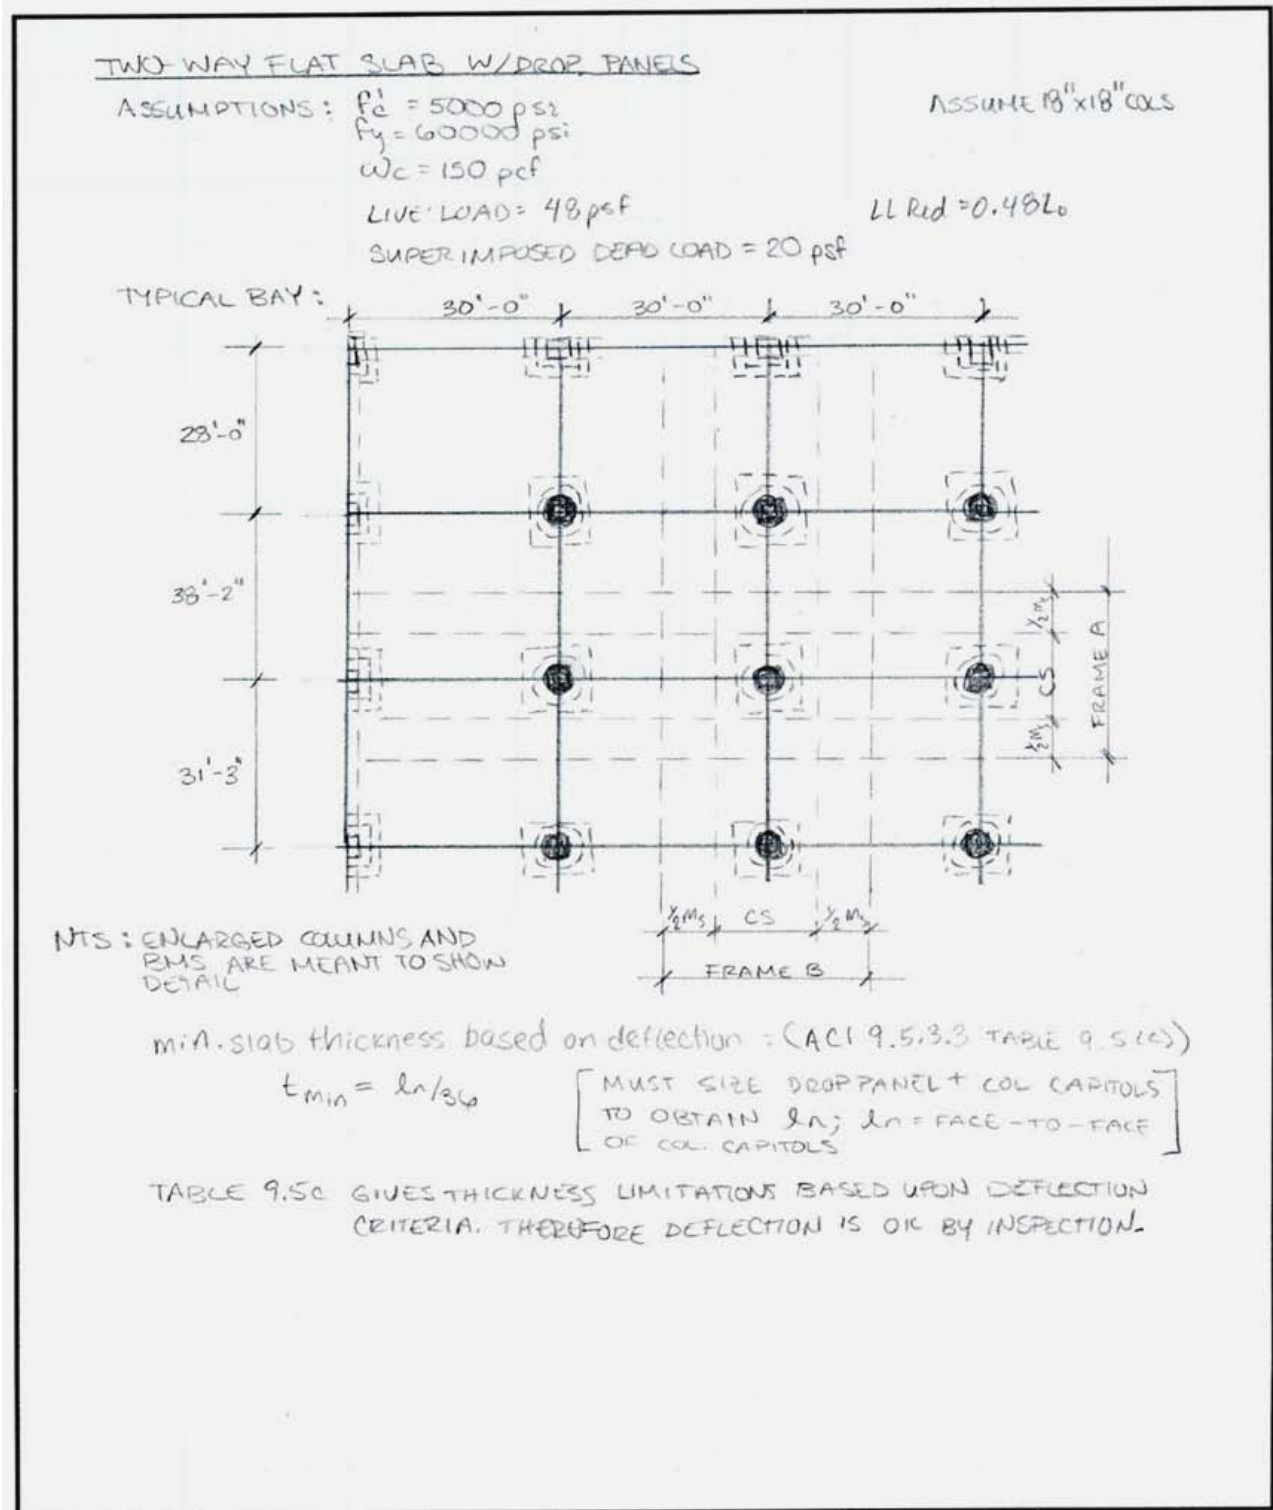 TWO-WAY FLAT SLAB W/DROP PANELS
ASSUMPTIONS: f'c = 5000 psi
ASSUME 18"x18" COLS
fy = 60000 psi
ωc = 150 pcf
LIVE LOAD = 48 psf
LL Red = 0.48L₀
SUPERIMPOSED DEAD LOAD = 20 psf
TYPICAL BAY:
30'-0" 30'-0" 30'-0"
28'-0"
38'-2"
31'-3"
½ MS
CS
½ MS
FRAME A
½ MS CS ½ MS
FRAME B
NTS: ENLARGED COLUMNS AND
BMS ARE MEANT TO SHOW
DETAIL
min. slab thickness based on deflection : (ACI 9.5.3.3 TABLE 9.5(c))
tmin = ln/36
[MUST SIZE DROP PANEL + COL CAPITOLS
TO OBTAIN ln; ln = FACE-TO-FACE
OF COL. CAPITOLS]
TABLE 9.5c GIVES THICKNESS LIMITATIONS BASED UPON DEFLECTION
CRITERIA. THEREFORE DEFLECTION IS OK BY INSPECTION.